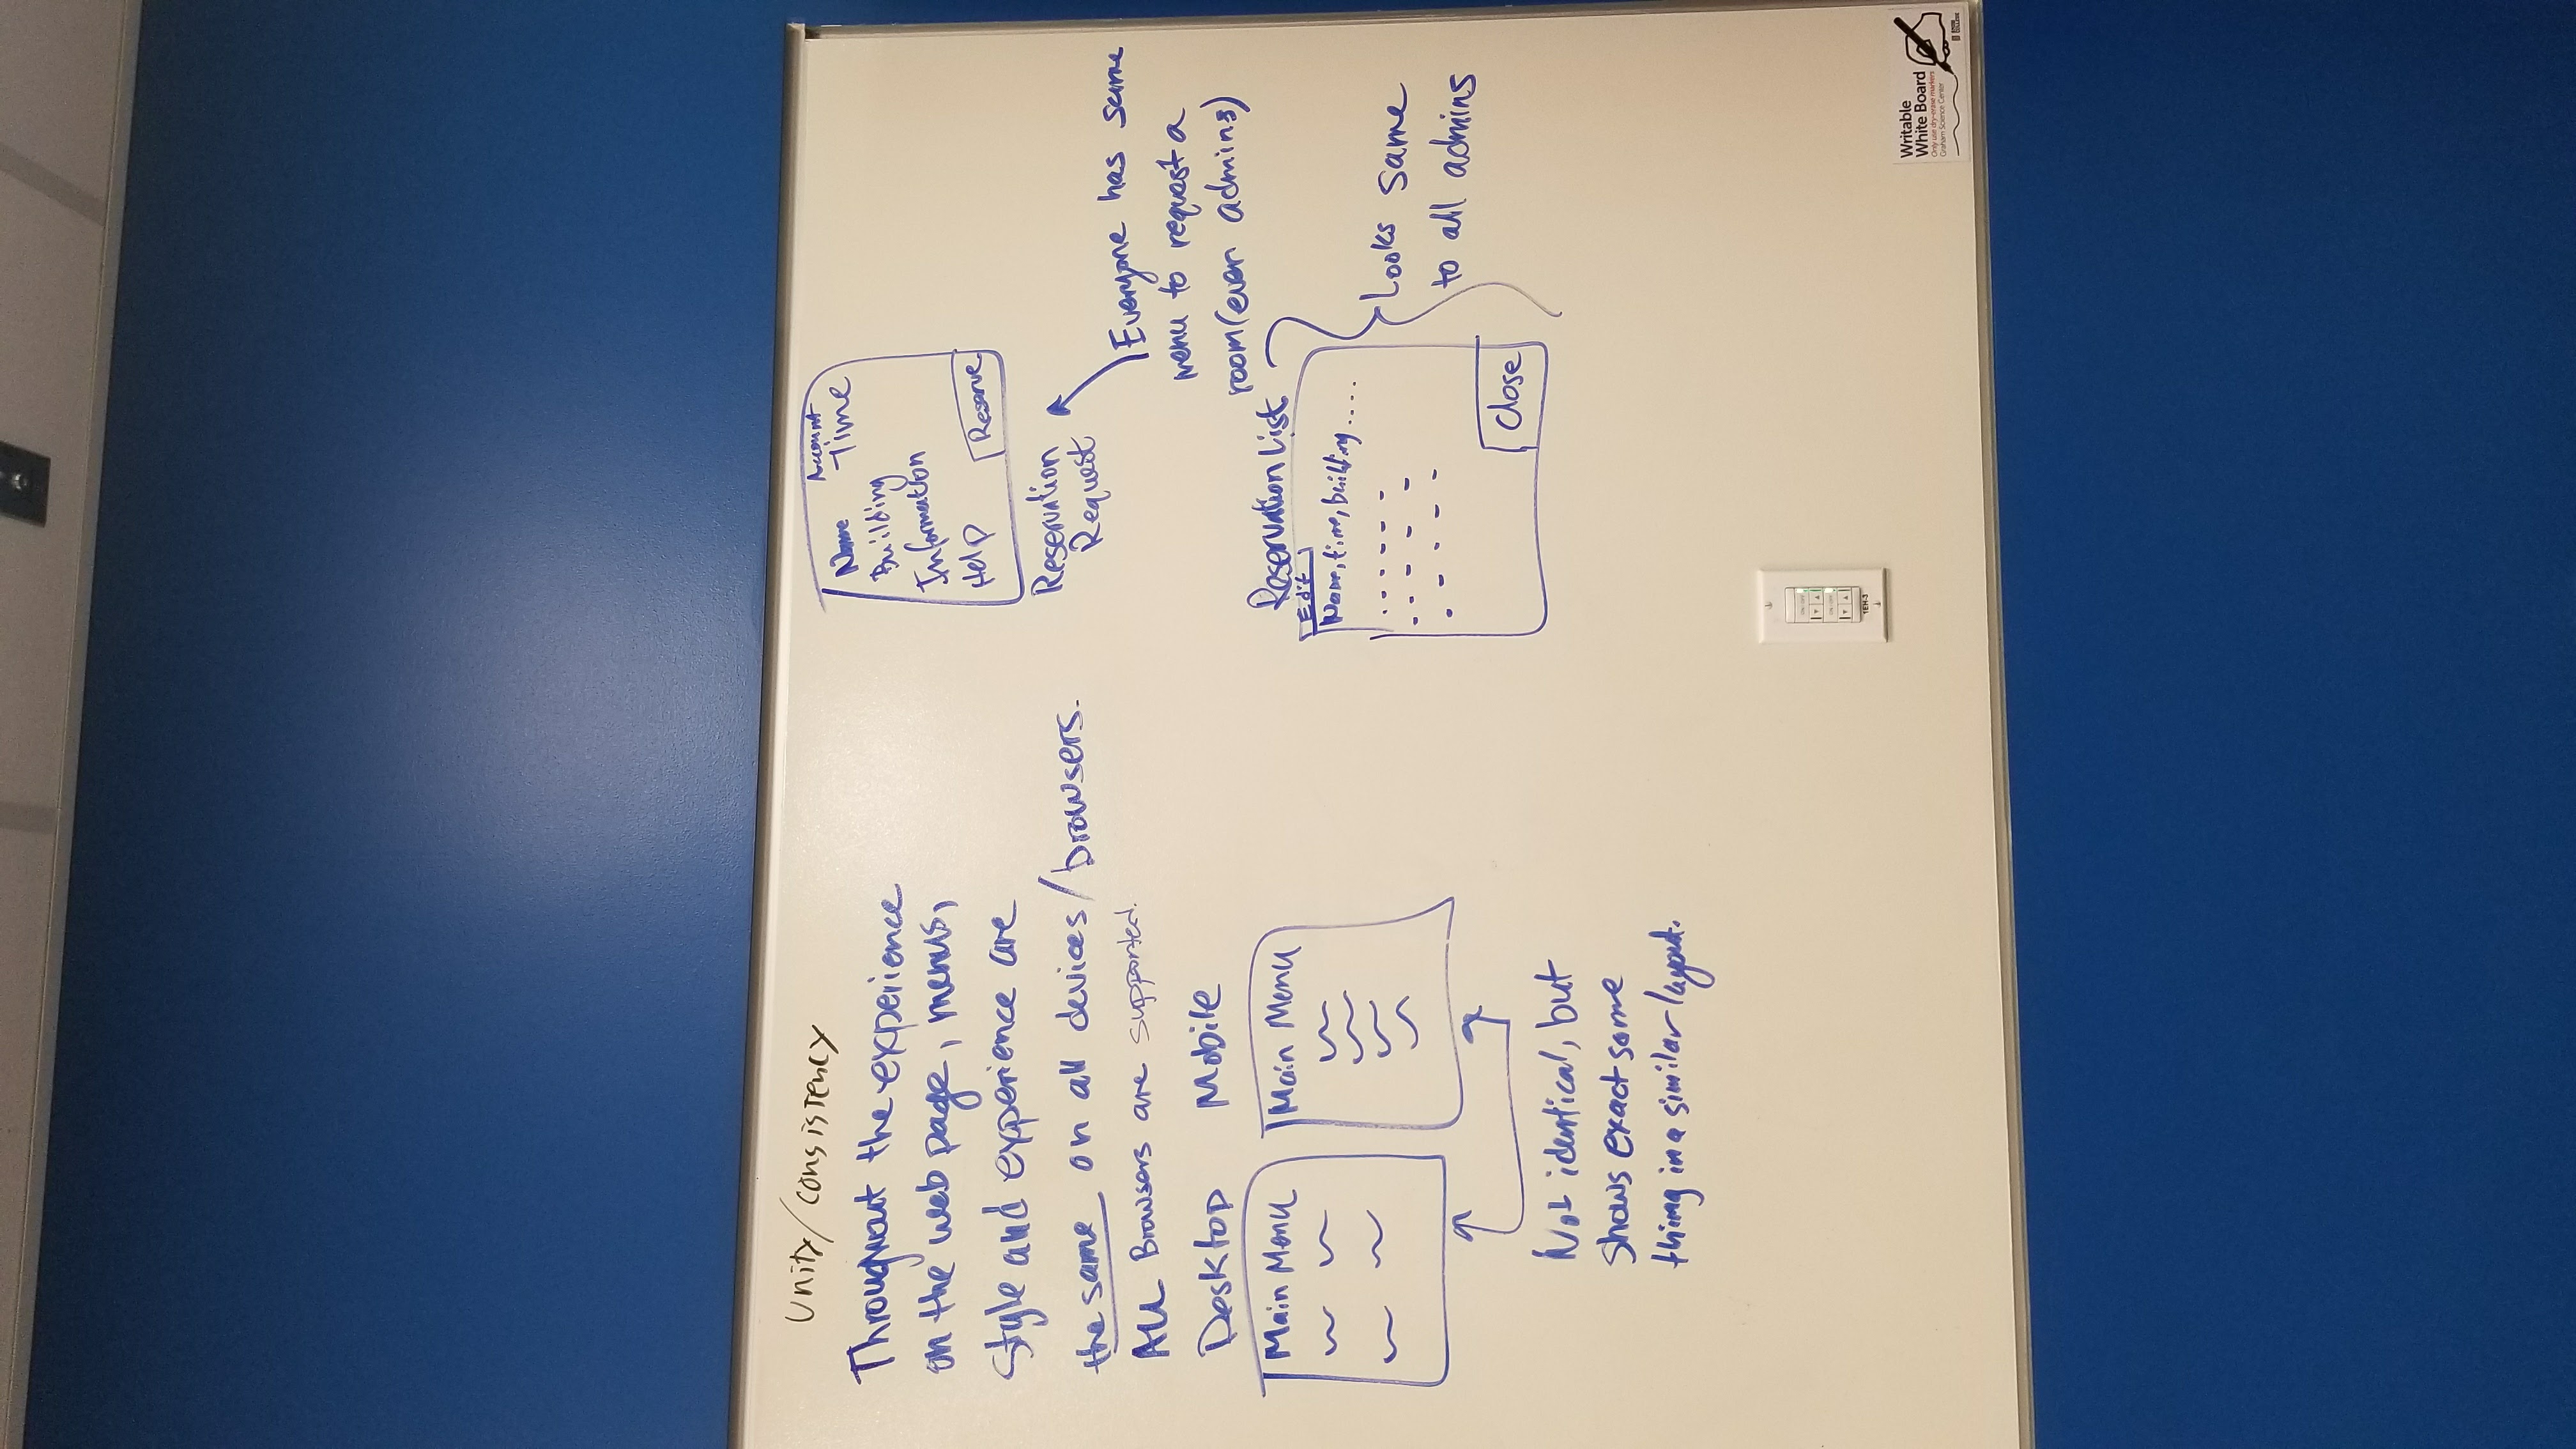 Unity/consistency
Throughout the experience
on the web page, menus,
Style and experience are
the same on all devices/browsers.
ALL Browsers are supported.
Desktop
Mobile
Main Menu
Main Menu
Not identical, but
shows exact same
thing in a similar layout.
Account
Name Time
Building
Information
Help
Reserve
Reservation
Request
Everyone has same
menu to request a
room(even admins)
Reservation List
Edit
Name, time, building....
Close
Looks same
to all admins
ON/OFF
ON/OFF
1EH-3
Writable
White Board
Only use dry-erase markers
Graham Science Center